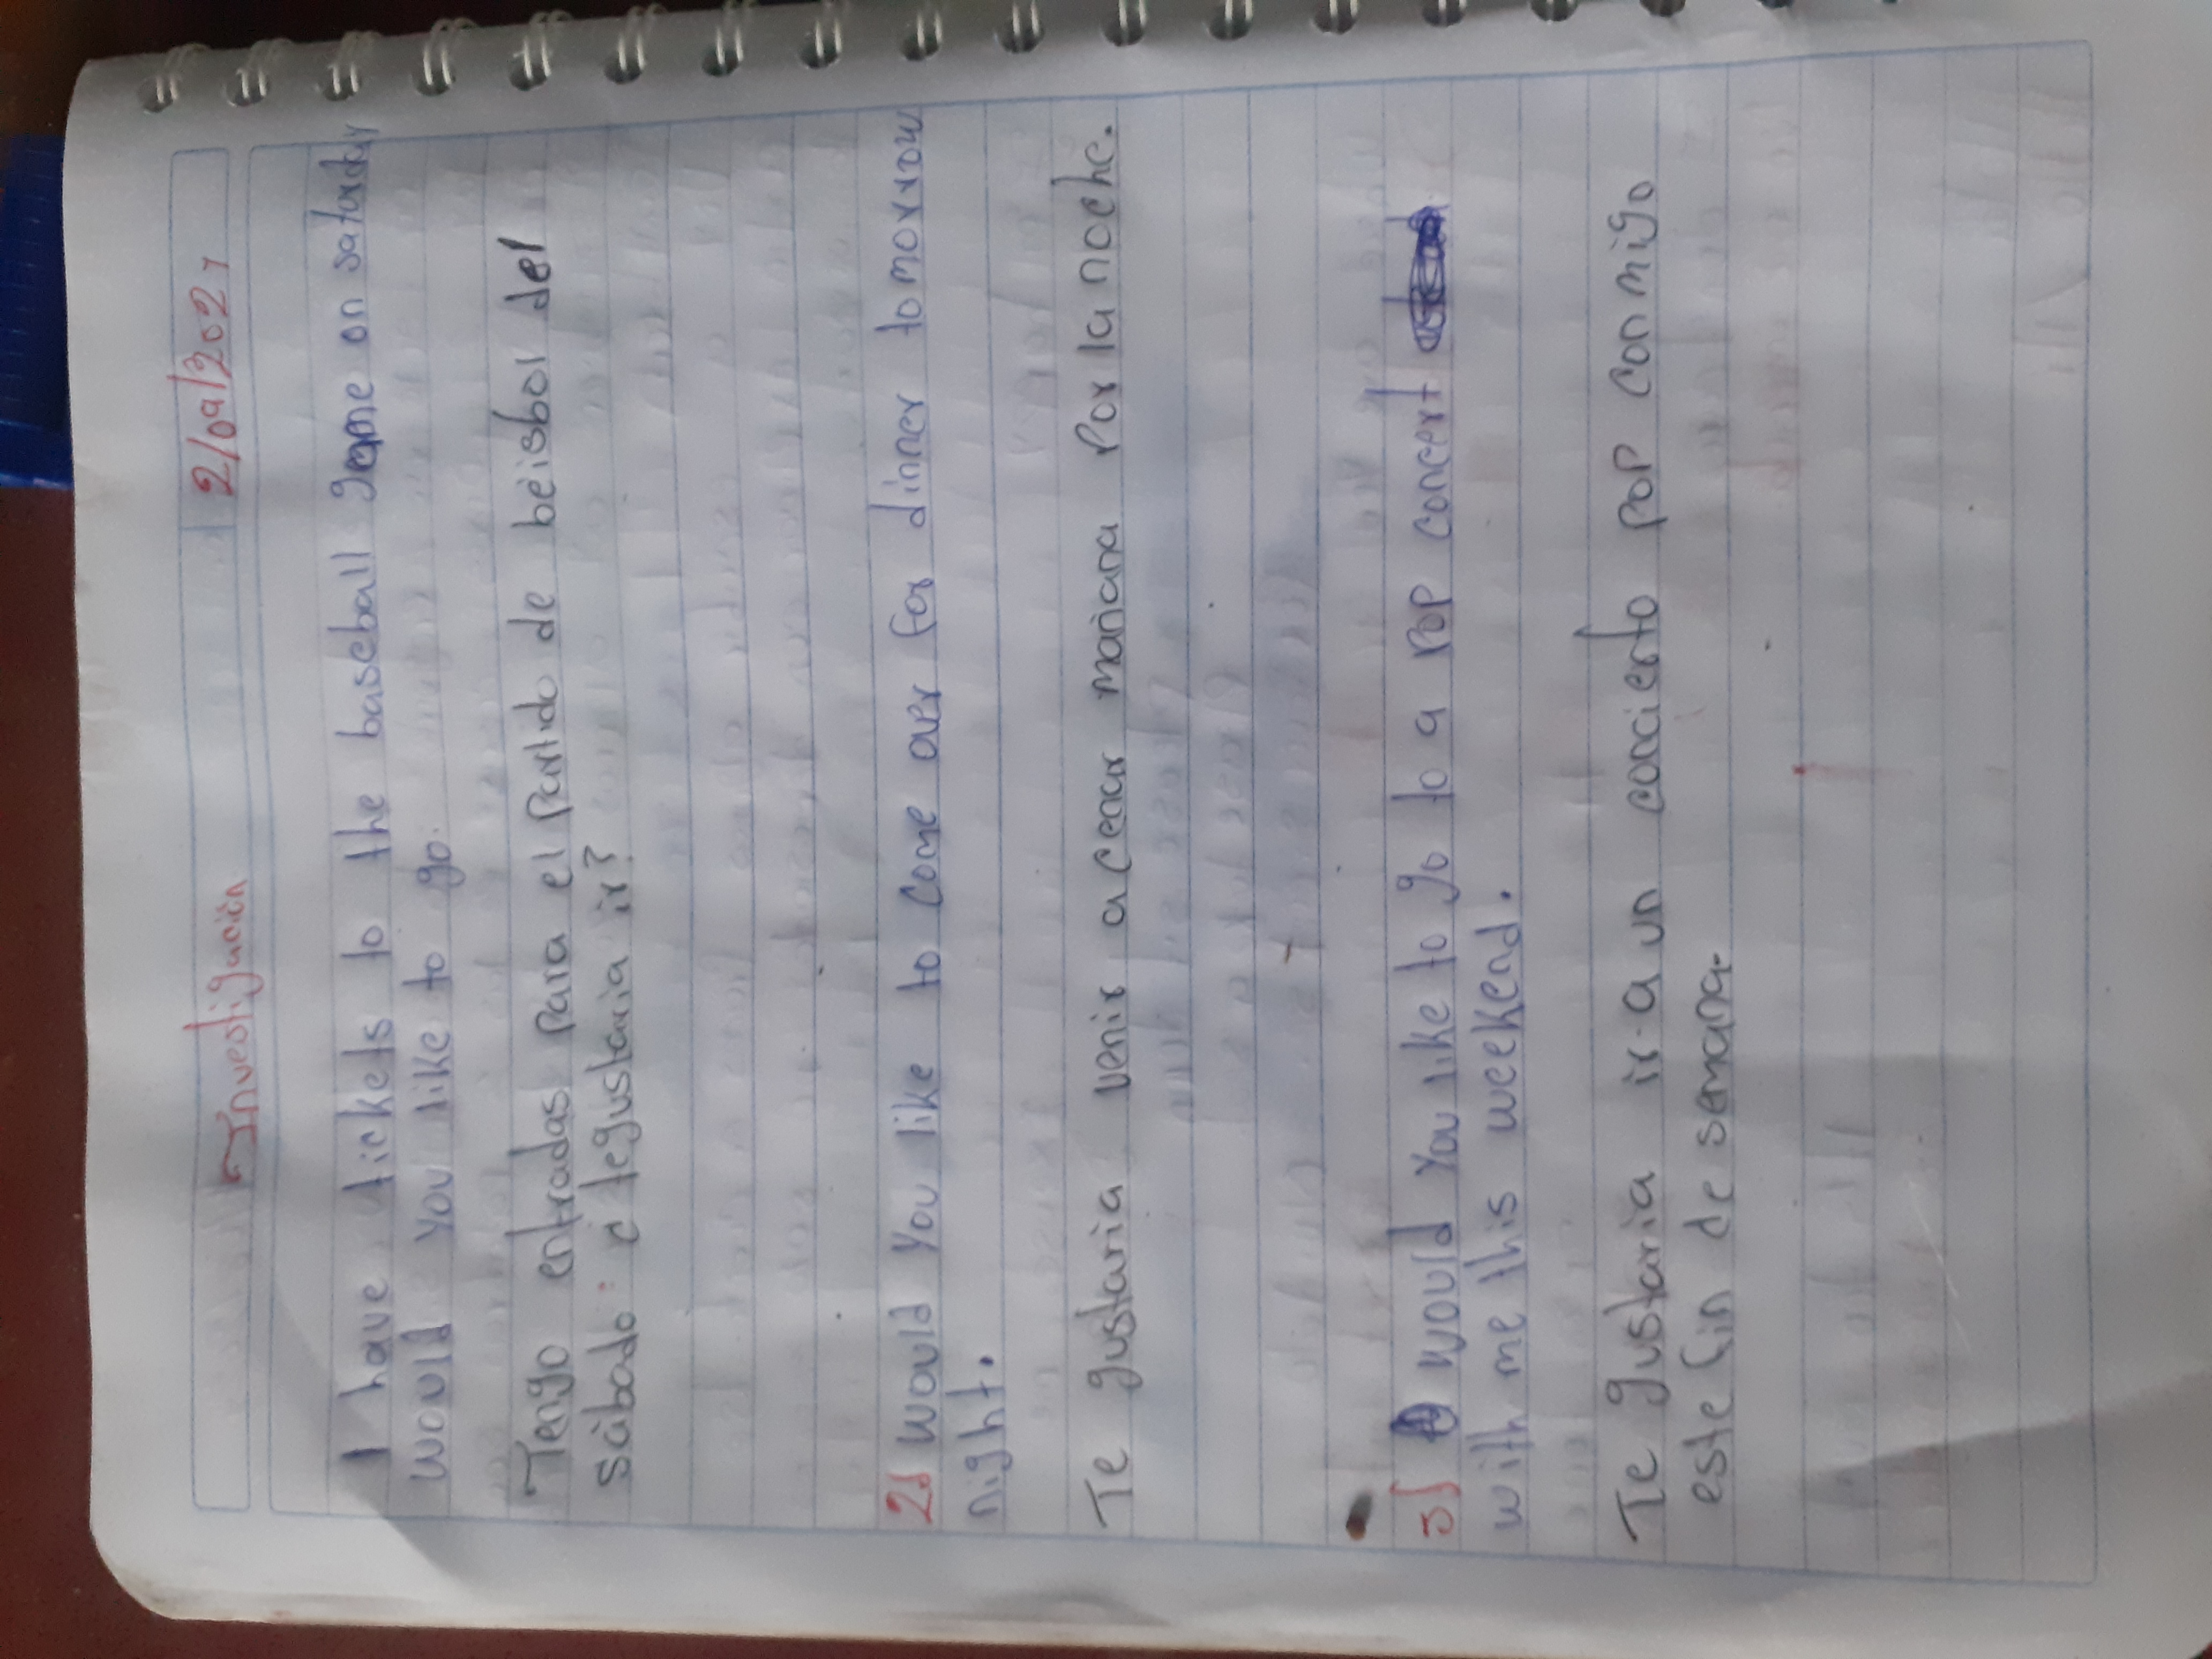 Investigación 2/09/2021
I have tickets to the baseball game on saturday
would you like to go.
Tengo entradas para el partido de béisbol del
sábado: ¿ tegustaria ir?
2) would you like to come over for dinner tomorrow
night.
Te gustaria venir a cenar mañana Por la noche.
3) would you like to go to a POP concert
with me this weekend.
Te gustaria ir a un concierto POP conmigo
este fin de semana.